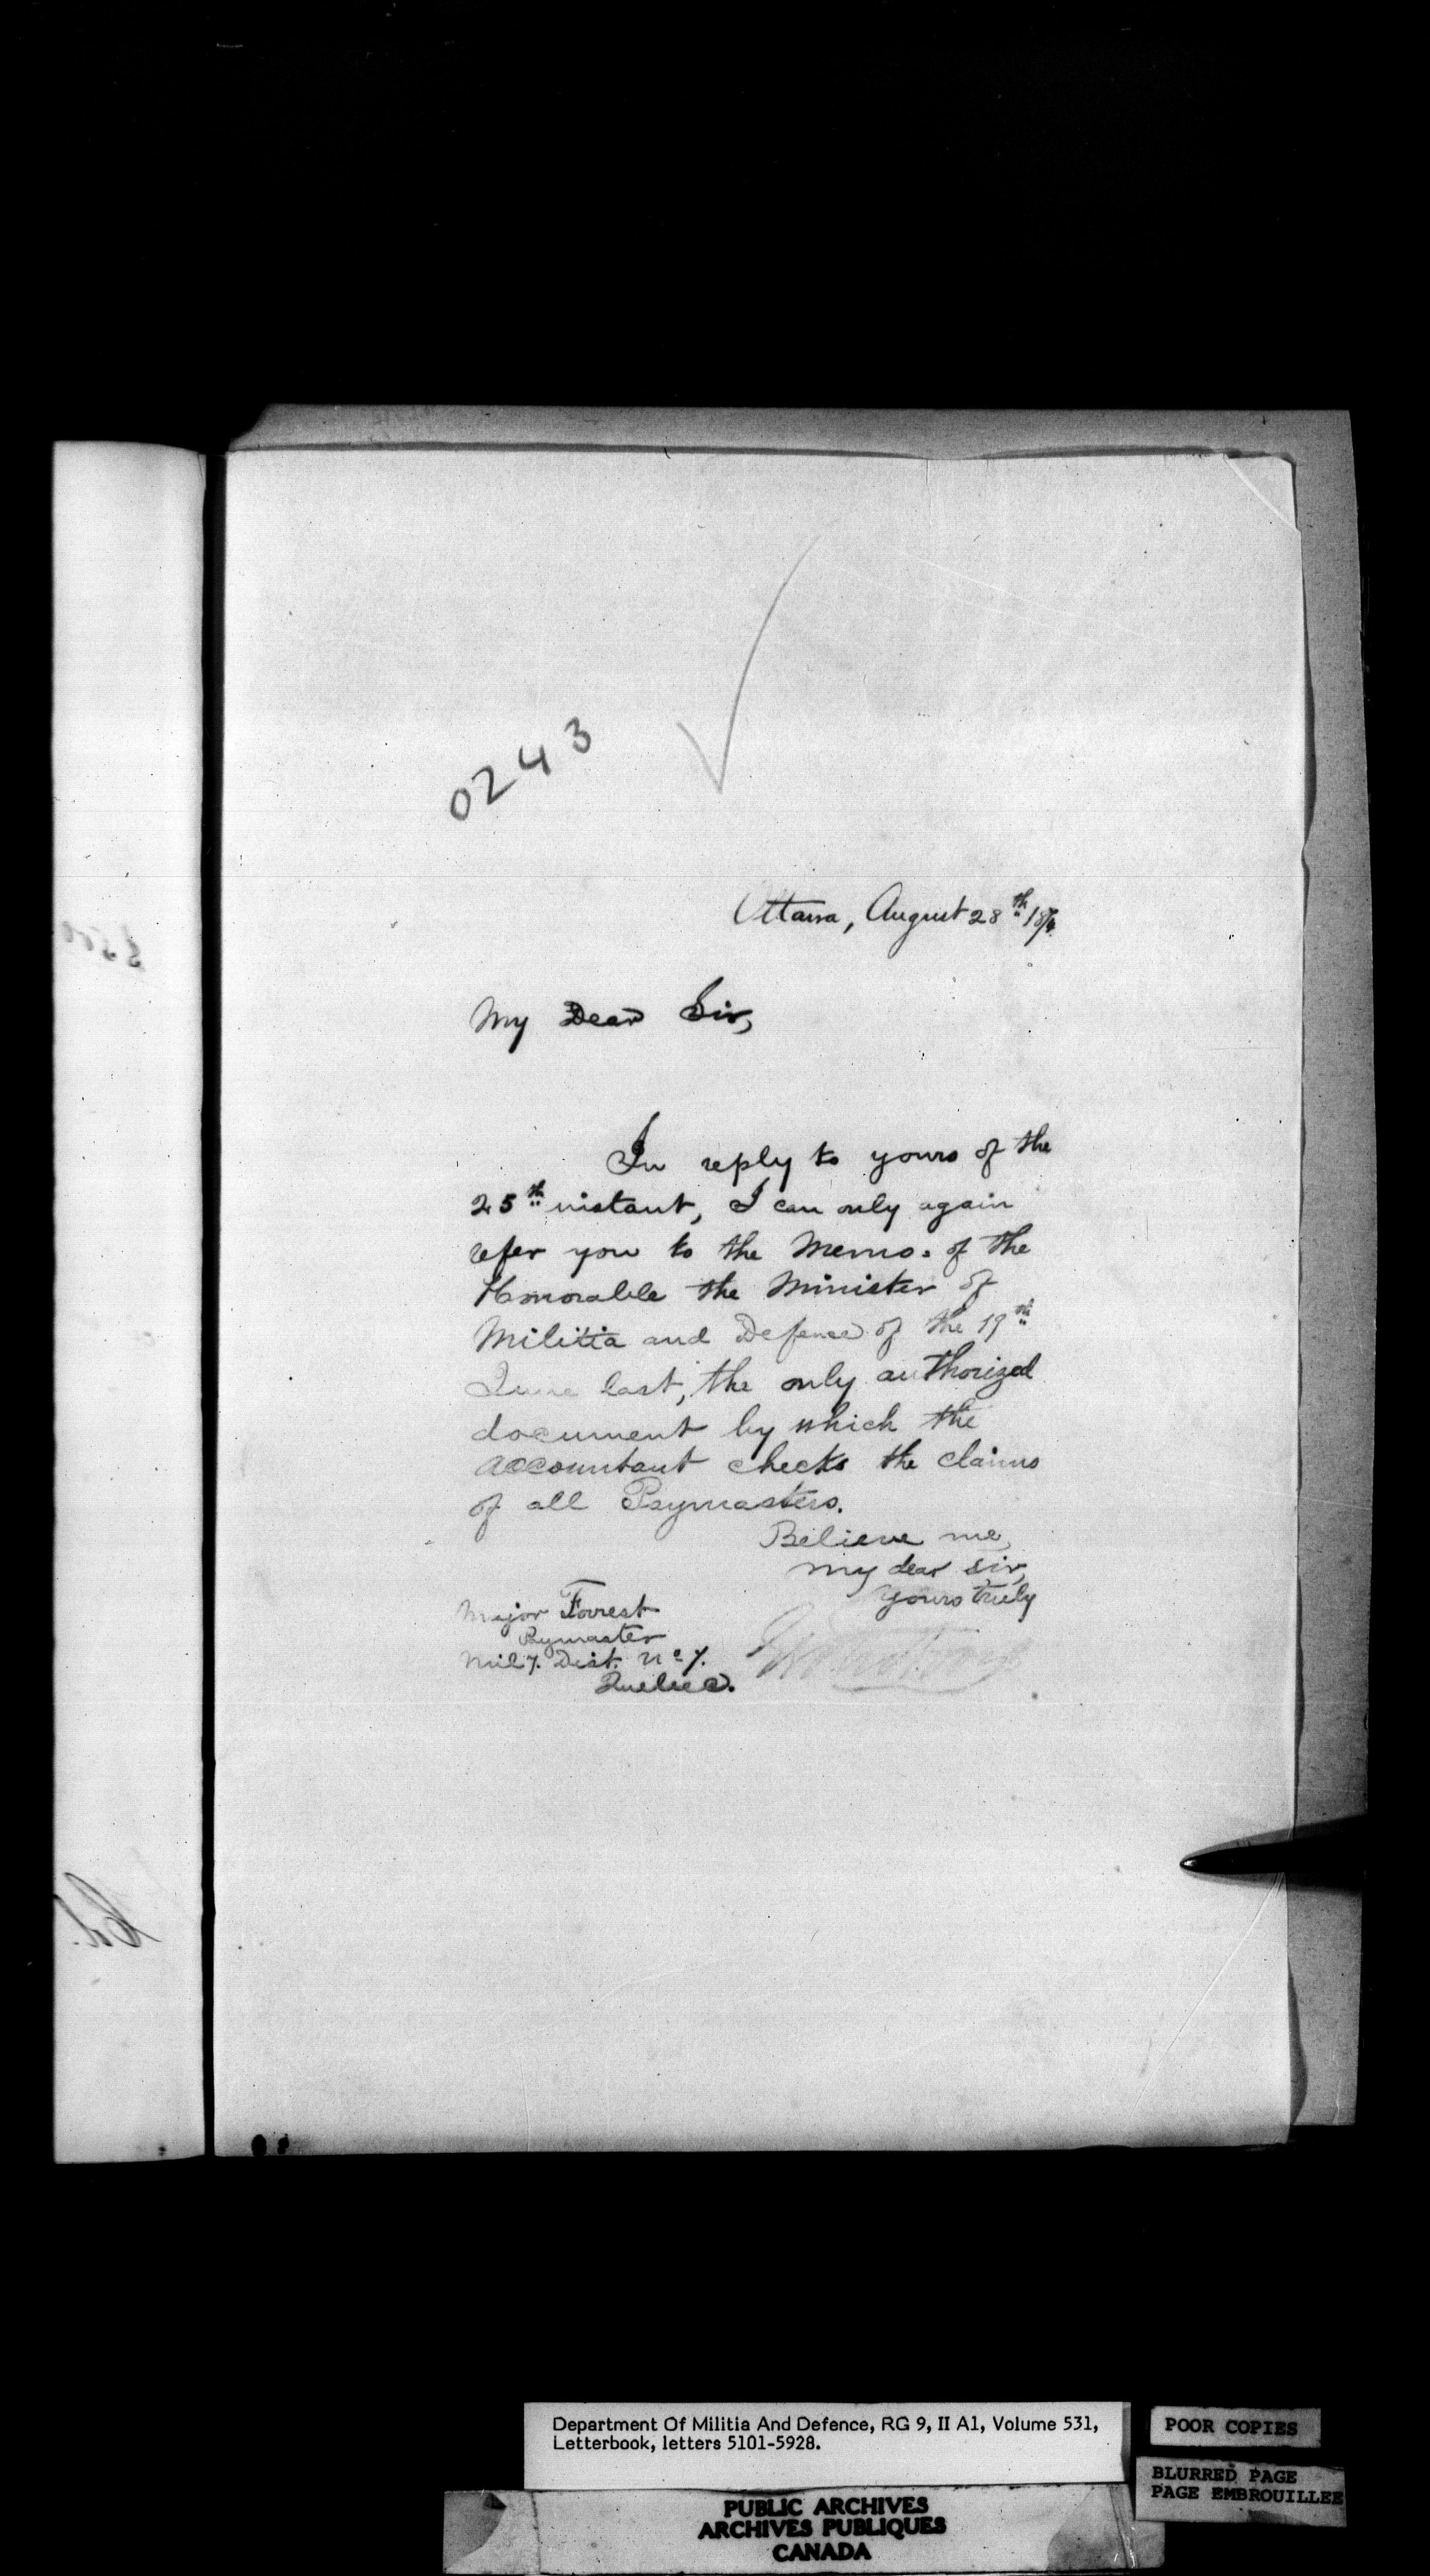 0243
Ottawa, August 28th 187
My Dear Sir,
In reply to yours of the
25th instant, I can only again
refer you to the Memo. of the
Honorable the Minister of
Militia and Defence of the 19th
June last, the only authorized
document by which the
accountant checks the claims
of all Paymasters.
Believe me,
my dear sir,
yours truly
Major Forrest
Paymaster
Mily. Dist. No 7.
Quebec.
Department Of Militia And Defence, RG 9, II A1, Volume 531,
Letterbook, letters 5101-5928.
POOR COPIES
BLURRED PAGE
PAGE EMBROUILLEE
PUBLIC ARCHIVES
ARCHIVES PUBLIQUES
CANADA